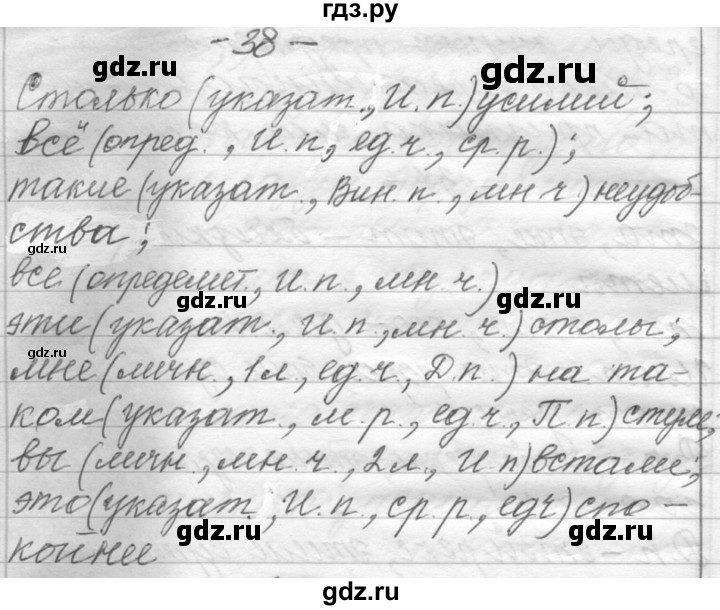 гдз.ру
- 38 -
gdz.ru gdz.ru
Столько (указат., И.п.) усилий;
всё (опред., И.п, ед.ч., ср.р.);
такие (указат., Вин.п., мн ч.) неудоб-
ства;
gdz.ru gdz.ru
все (определит., И.п., мн.ч.)
gdz.ru gdz.ru
эти (указат., И.п., мн.ч.) столы;
gdz.ru
мне (личн., 1л., ед.ч., Д.п.) на та-
ком (указат., м.р., ед.ч., П.п) стуле;
вы (личн., мн.ч., 2л., И.п) встали;
gdz.ru
это (указат., И.п., ср.р., ед ч) спо-
gdz.ru gdz.ru
койнее
gdz.ru